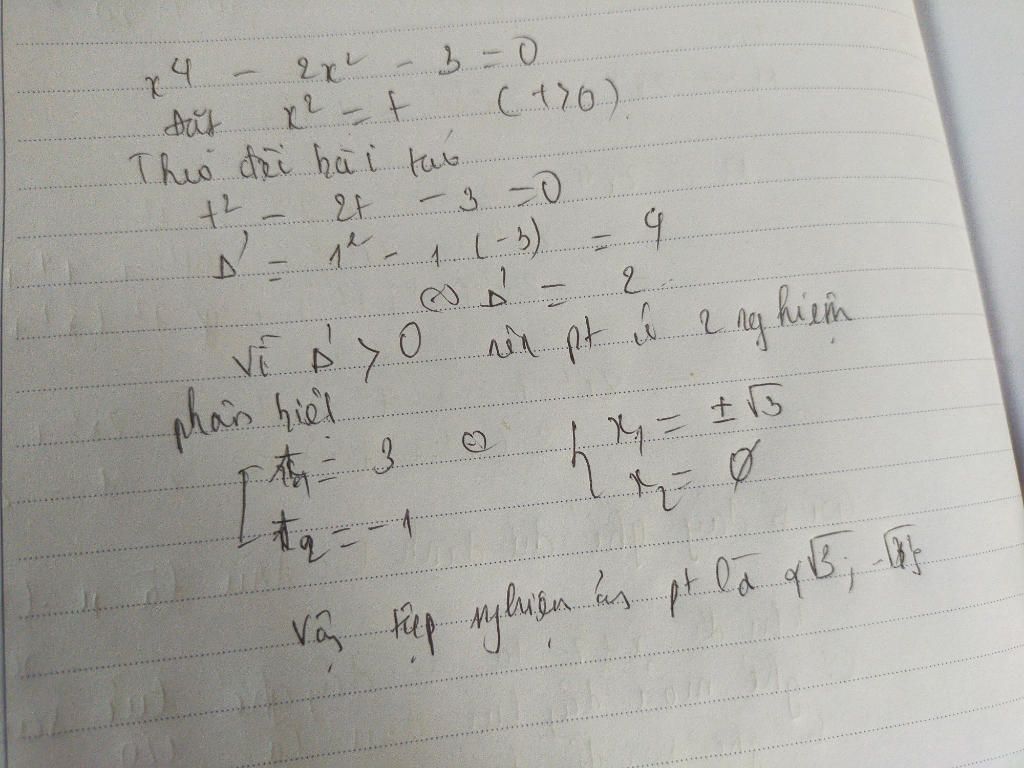 x⁴ - 2x² - 3 = 0
đặt x² = t (t>0)
Theo đề bài ta có
t² - 2t - 3 = 0
Δ' = 1² - 1 (-3) = 4
Δ' = 2
Vì Δ' > 0 nên pt có 2 nghiệm
phân biệt
[ t₁ = 3 ⇔ { x₁ = ±√3
t₂ = -1 x₂ = ∅
Vậy tập nghiệm pt là {√3; -√3}